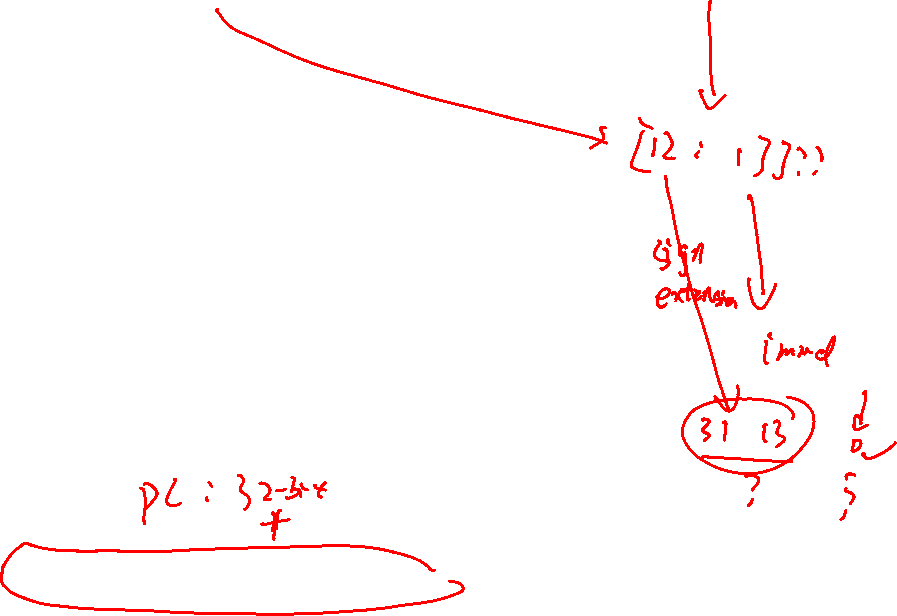 [12 : 13]??
sign
extension
immd
31 13
?
PC : 32-bit
+